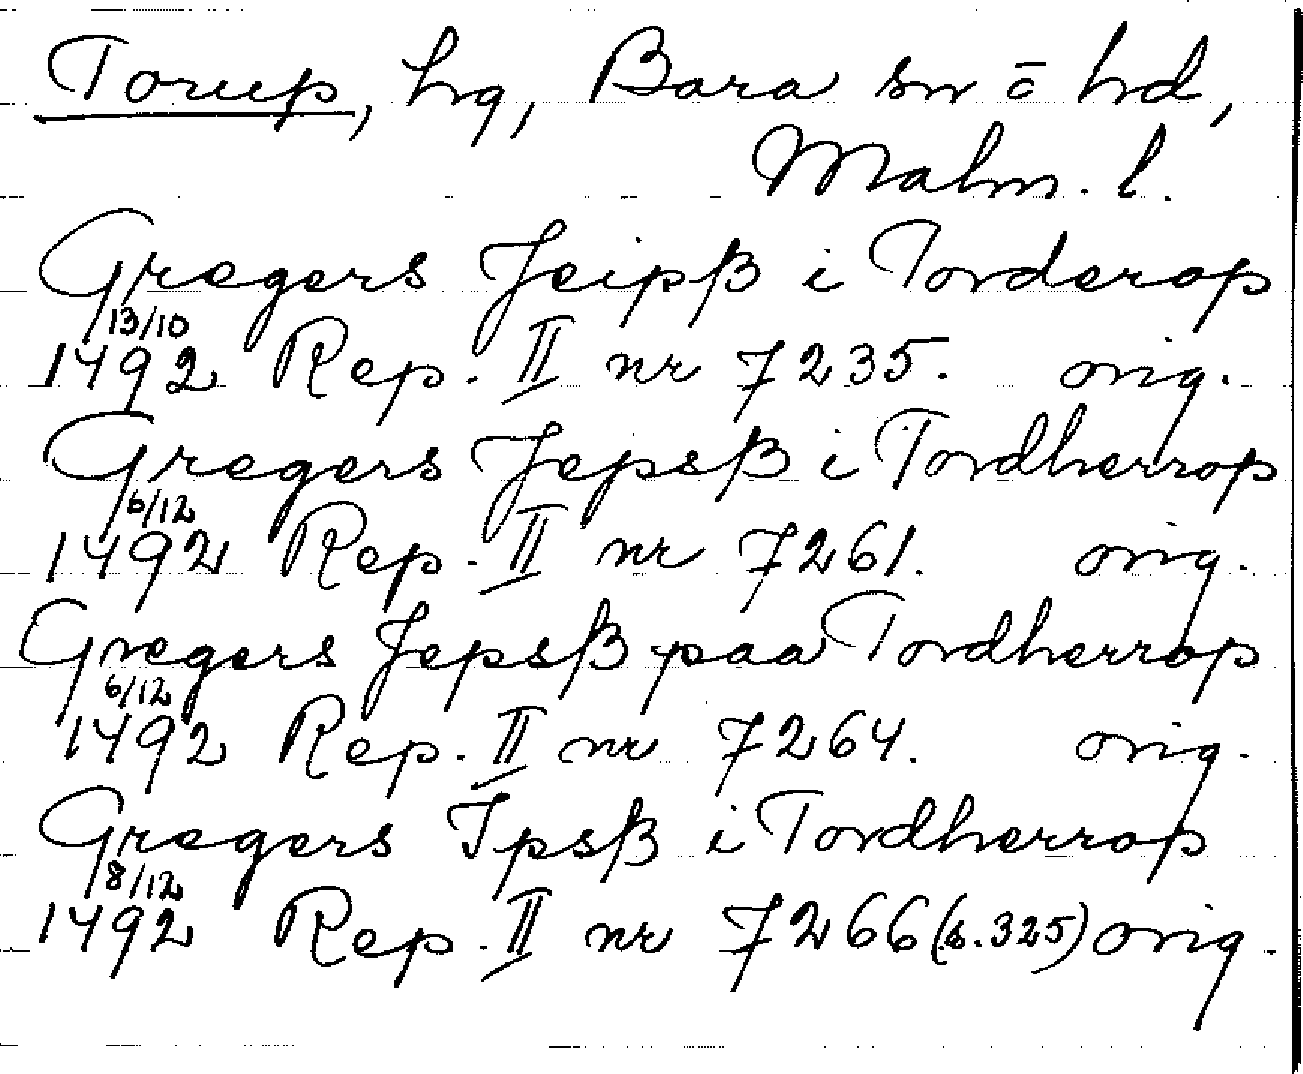 Torup, hg, Bara sn o hd,
Malm. l.
Gregers Jeipß i Torderop
13/10
1492 Rep. II nr 7235. orig.
Gregers Jepsß i Tordherrop
6/12
1492 Rep. II nr 7261. orig.
Gregers Jepsß paa Tordherrop
6/12
1492 Rep. II nr 7264. orig.
Gregers Ipsß i Tordherrop
8/12
1492 Rep. II nr 7266 (s. 325) orig.